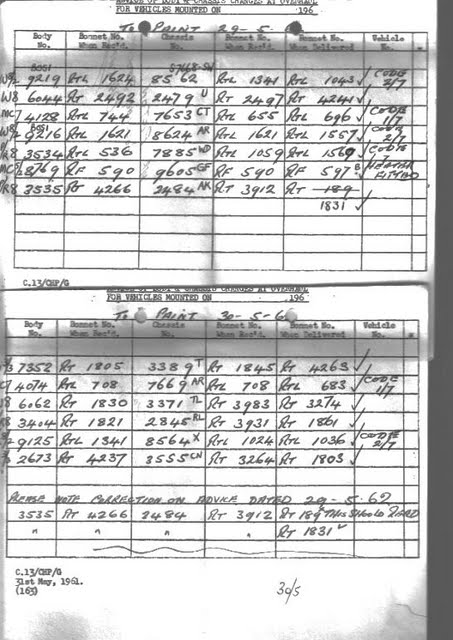 ADVICE OF BODY & CHASSIS CHANGES AT OVERHAUL
FOR VEHICLES MOUNTED ON 196
TO PAINT 29-5-6
Body No. Bonnet No. When Rec'd. Chassis No. Bonnet No. When Rec'd. Bonnet No. When Delivered Vehicle No.
BOSI
9219 RTL 1624 8562 RTL 1341 RTL 1043 ✓ CODE 2/7
W8 6044 RT 2492 2479 U RT 2497 RT 4241 ✓
MC 4128 RTL 744 7653 CT RTL 655 RTL 696 ✓ CODE 1/7
W8 BOSI 9216 RTL 1621 8624 AR RTL 1621 RTL 1557 ✓ CODE 2/7
R8 3534 RTL 536 7885 WD RTL 1059 RTL 1569 ✓ CODE
MC 8769 RF 590 9605 GF RF 590 RF 597 B HEATER FITTED
R8 3535 RT 4266 2484 AK RT 3912 RT 189
1831 ✓
C.13/CHP/G
ADVICE OF BODY & CHASSIS CHANGES AT OVERHAUL
FOR VEHICLES MOUNTED ON 196
TO PAINT 30-5-6
Body No. Bonnet No. When Rec'd. Chassis No. Bonnet No. When Rec'd. Bonnet No. When Delivered Vehicle No. *
7352 RT 1805 3389 T RT 1845 RT 4263 ✓
4074 RTL 708 7669 AR RTL 708 RTL 683 ✓ CODE 1/7
6062 RT 1830 3371 TL RT 3983 RT 3274 ✓
3404 RT 1821 2845 RL RT 3931 RT 1861 ✓
9125 RTL 1341 8564 X RTL 1024 RTL 1036 ✓ CODE 2/7
2673 RT 4237 3555 CN RT 3264 RT 1803 ✓
PLEASE NOTE CORRECTION ON ADVICE DATED 29-5-62
3535 RT 4266 2484 RT 3912 RT 189 THIS SHOULD READ
" " " " RT 1831 ✓
C.13/CHP/G
31st May, 1961.
(163)
30/5